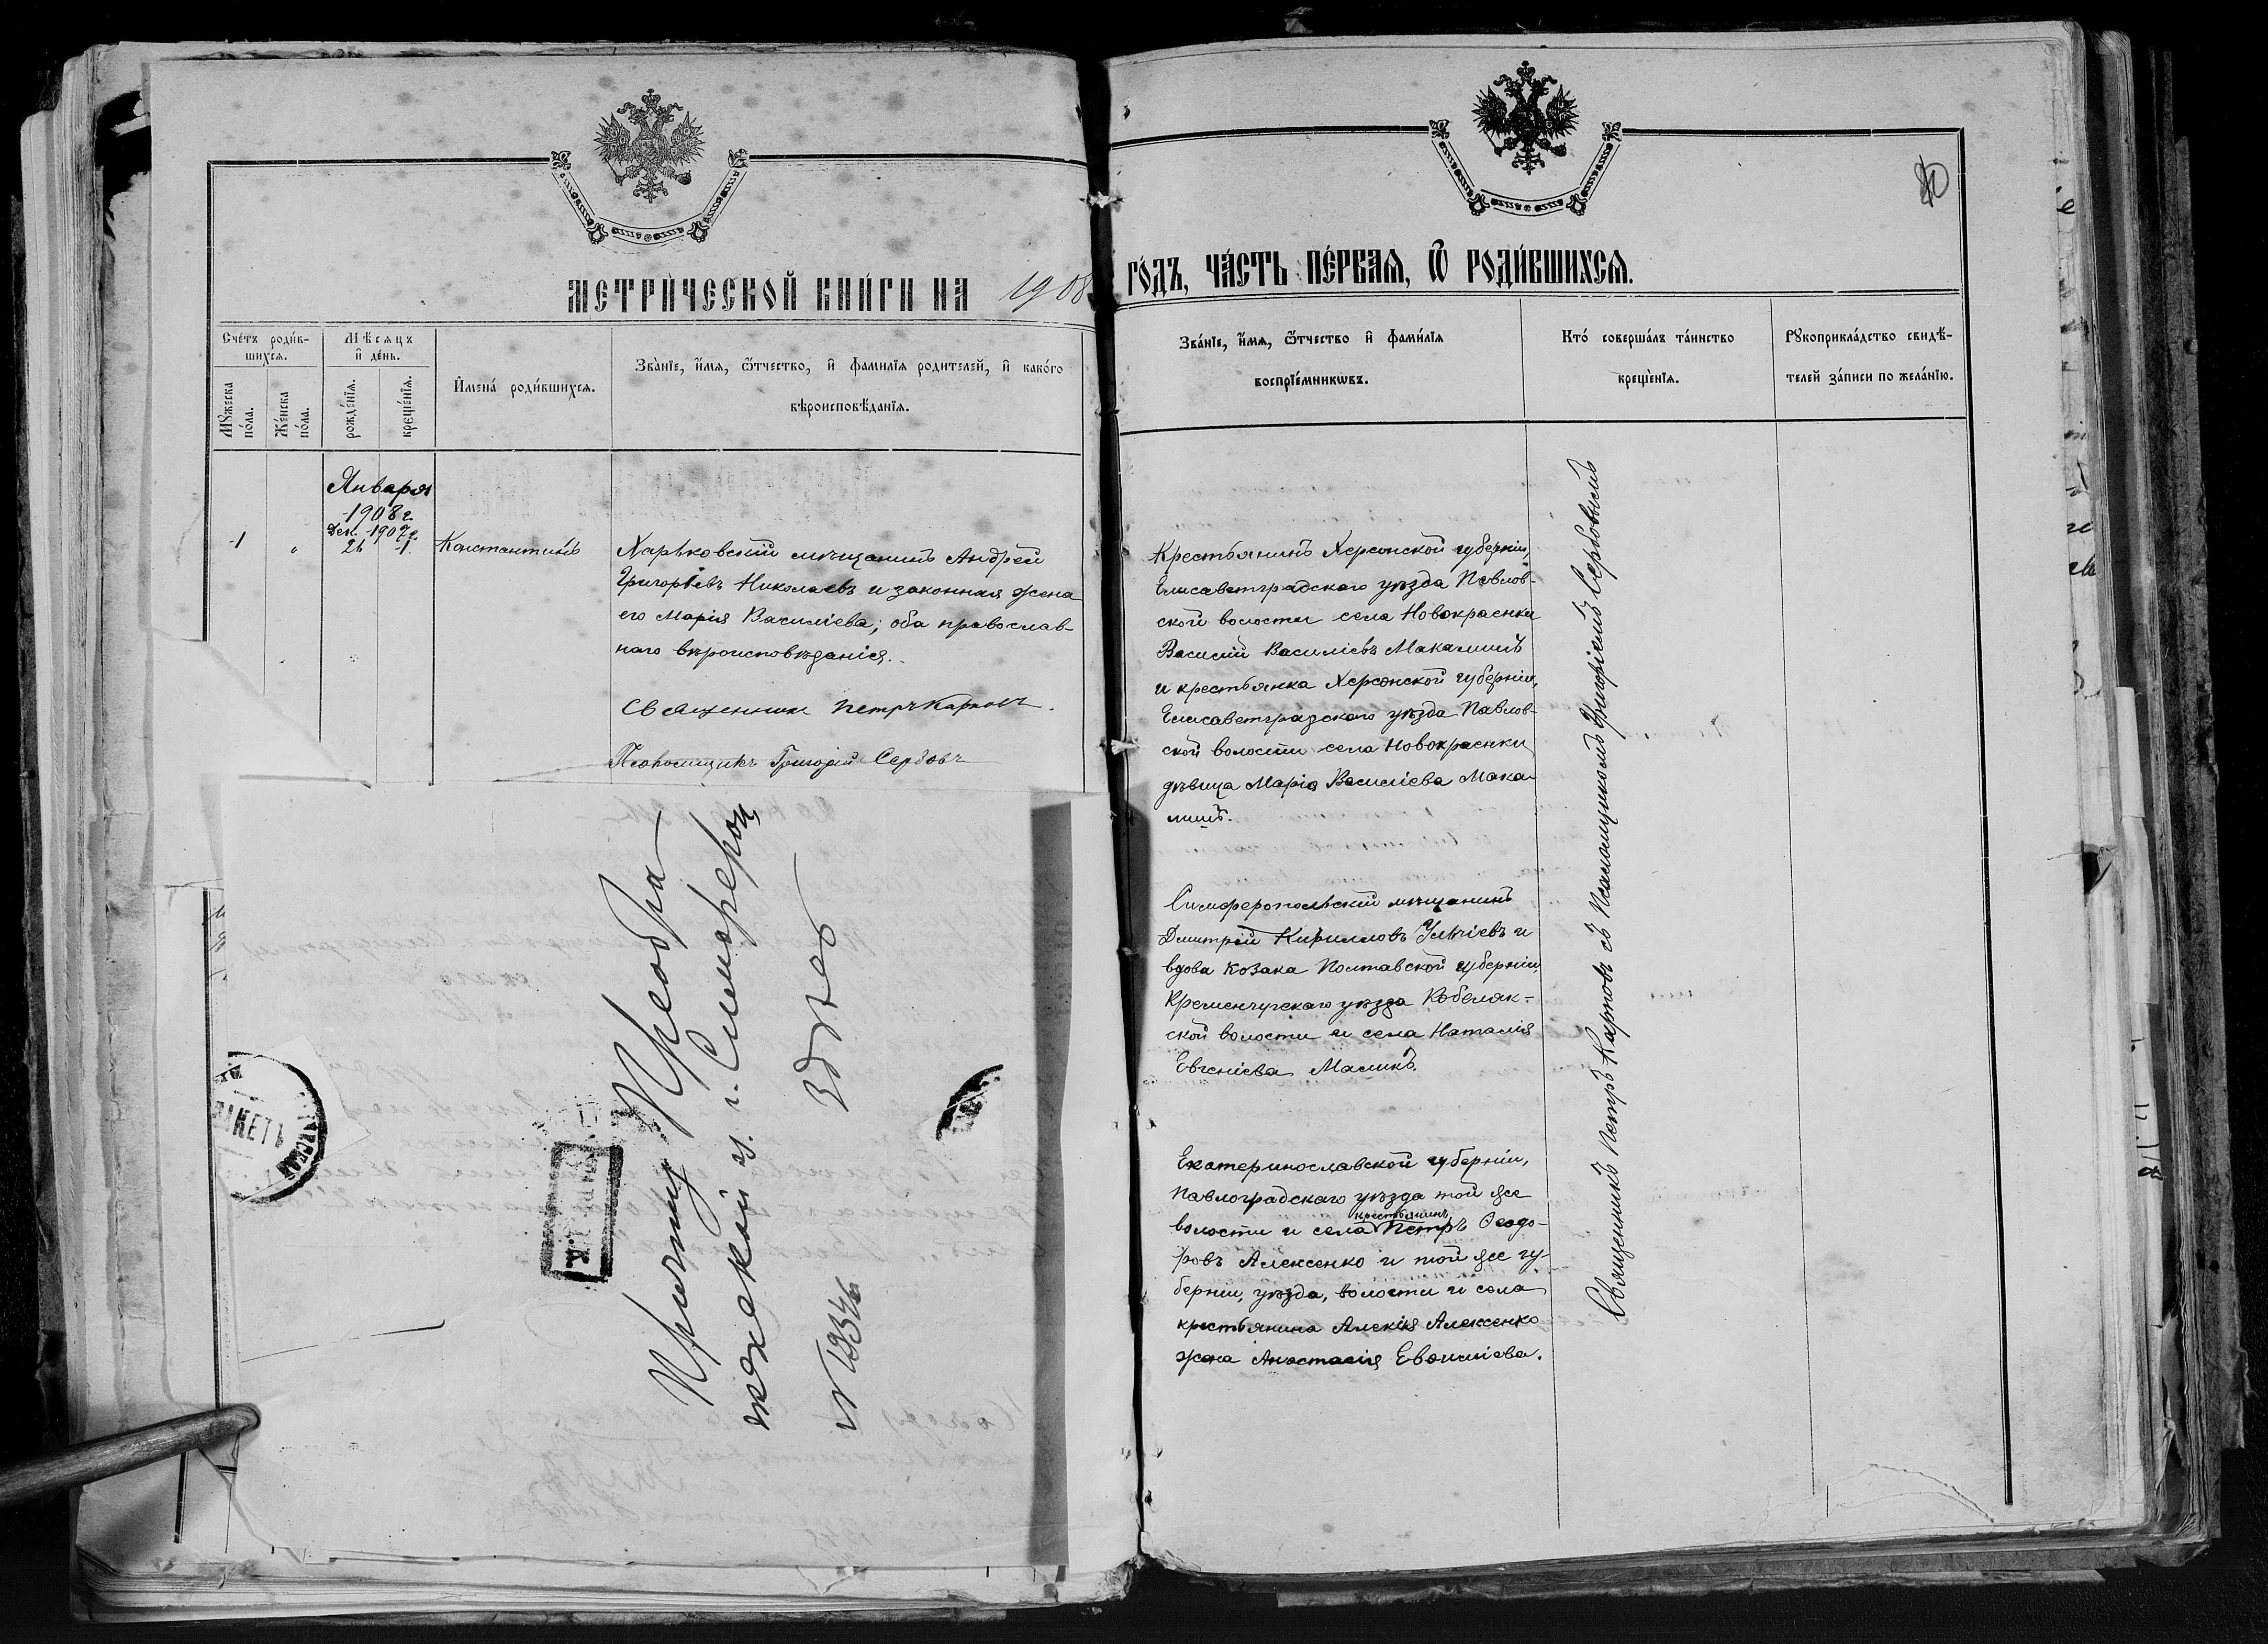 МЕТРИЧЕСКОЙ КНИГИ НА 1908
Счетъ родив-
шихся.
Мужеска
пола.
Женска
пола.
Мѣсяцъ
и день.
рожденїя.
крещенїя.
Имена родившихся.
Званїе, имя, ѿтчество, и фамилїя родителей, и какого
вѣроисповѣданїя.
Января
1908 г.
Дек. 1907 г.
1 " 26 1. Константинъ
Харьковскій мѣщанинъ Андрей
Григоріевъ Николаевъ и законная жена
его Марія Василіева; оба православ-
наго вѣроисповѣданія.
Священникъ Петръ Карповъ.
Псаломщикъ Григорій Сербовъ
Причту Преобра-
женской ц. г. Симфероп
№ 19346 здѣсь
ГОДЪ, ЧАСТЬ ПЕРВАЯ, Ѿ РОДИВШИХСЯ.
Званїе, имя, ѿтчество и фамилїя
воспрїемникѡвъ.
Кто совершалъ таинство
крещенїя.
Рꙋкоприкладство свидѣ-
телей записи по желанїю.
Крестьянинъ Херсонской губерніи,
Елисаветградскаго уѣзда Павлов-
ской волости села Новокраснки
Василій Василіевъ Макалишъ
и крестьянка Херсонской губерніи,
Елисаветградскаго уѣзда Павлов-
ской волости села Новокраснки
дѣвица Марія Василіева Мака-
лишъ.
Симферопольскій мѣщанинъ
Дмитрій Кирилловъ и
вдова козака Полтавской губерніи,
Кременчугскаго уѣзда Кобеляк-
ской волости и села Наталія
Евгеніева Маликъ.
Екатеринославской губерніи,
Павлоградскаго уѣзда той же
волости и села крестьянинъ Петръ Ѳеодо-
ровъ Алексенко и той же гу-
берніи, уѣзда, волости и села
крестьянина Алексія Алексенко
жена Анастасія
Священникъ Петръ Карповъ съ Псаломщикомъ Григоріемъ Сербовымъ